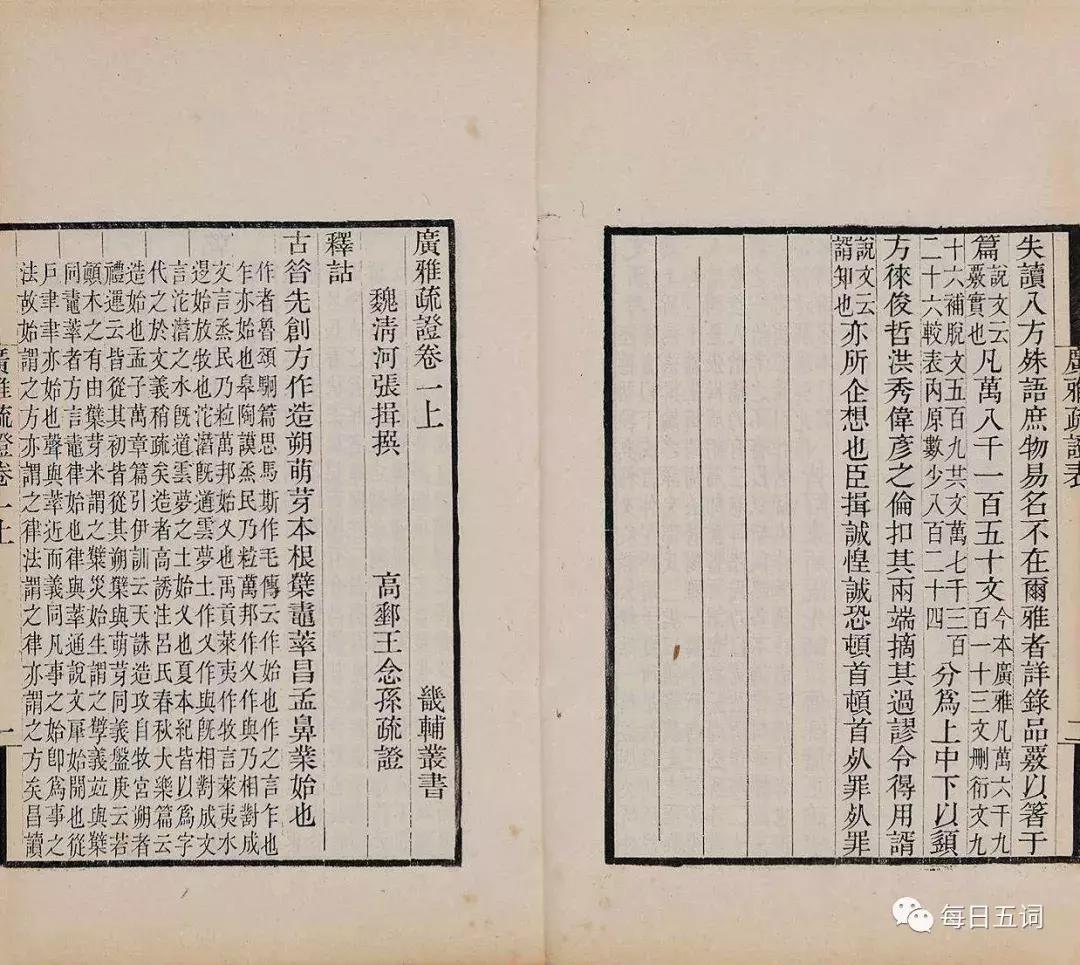 廣雅疏證表
二
失讀八方殊語庶物易名不在爾雅者詳錄品覈以箸于
篇
說文云
覈實也
凡萬八千一百五十文
今本廣雅凡萬六千九
百一十三文刪衍文九
十六補脫文五百九共文萬七千三百
二十六較表內原數少八百二十四
分爲上中下以䫉
方徠俊哲洪秀偉彥之倫扣其兩端摘其過謬令得用諝
說文云
諝知也
亦所企想也臣揖誠惶誠恐頓首頓首死罪死罪
廣雅疏證卷一上
畿輔叢書
魏清河張揖撰
高郵王念孫疏證
釋詁
古昔先創方作造朔萌芽本根櫱鼃䔞昌孟鼻業始也
作者魯頌駉篇思馬斯作毛傳云作始也作之言乍也
乍亦始也皋陶謨烝民乃粒萬邦作乂作與乃相對成
文言烝民乃粒萬邦始乂也禹貢萊夷作牧言萊夷水
退始放牧也沱潛旣道雲夢土作乂作與旣相對成文
言沱潛之水旣道雲夢之土始乂也夏本紀皆以爲字
代之於文義稍疏矣造者高誘注呂氏春秋大樂篇云
造始也孟子萬章篇引伊訓云天誅造攻自牧宮朔者
禮運云皆從其初皆從其朔櫱與萌芽同義盤庚云若
顚木之有由櫱芽米謂之櫱災始生謂之孼義竝與櫱
同鼃䔞者方言鼃律始也律與䔞通說文肁始開也從
戶聿聿亦始也聲與䔞近而義同凡事之始卽爲事之
法故始謂之方亦謂之律法謂之律亦謂之方矣昌讀
廣雅疏證卷一上
一
每日五词